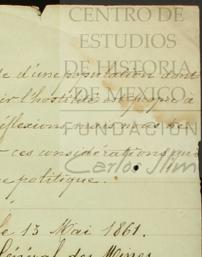 CENTRO DE
ESTUDIOS
DE HISTORIA
DE MEXICO
FUNDACIÓN
Carlos Slim
e d'une population dont
ir l'hostilité
réflexions, mais nous ne
ces considérations que
e politique.
le 13 Mai 1861.
Général des Mines